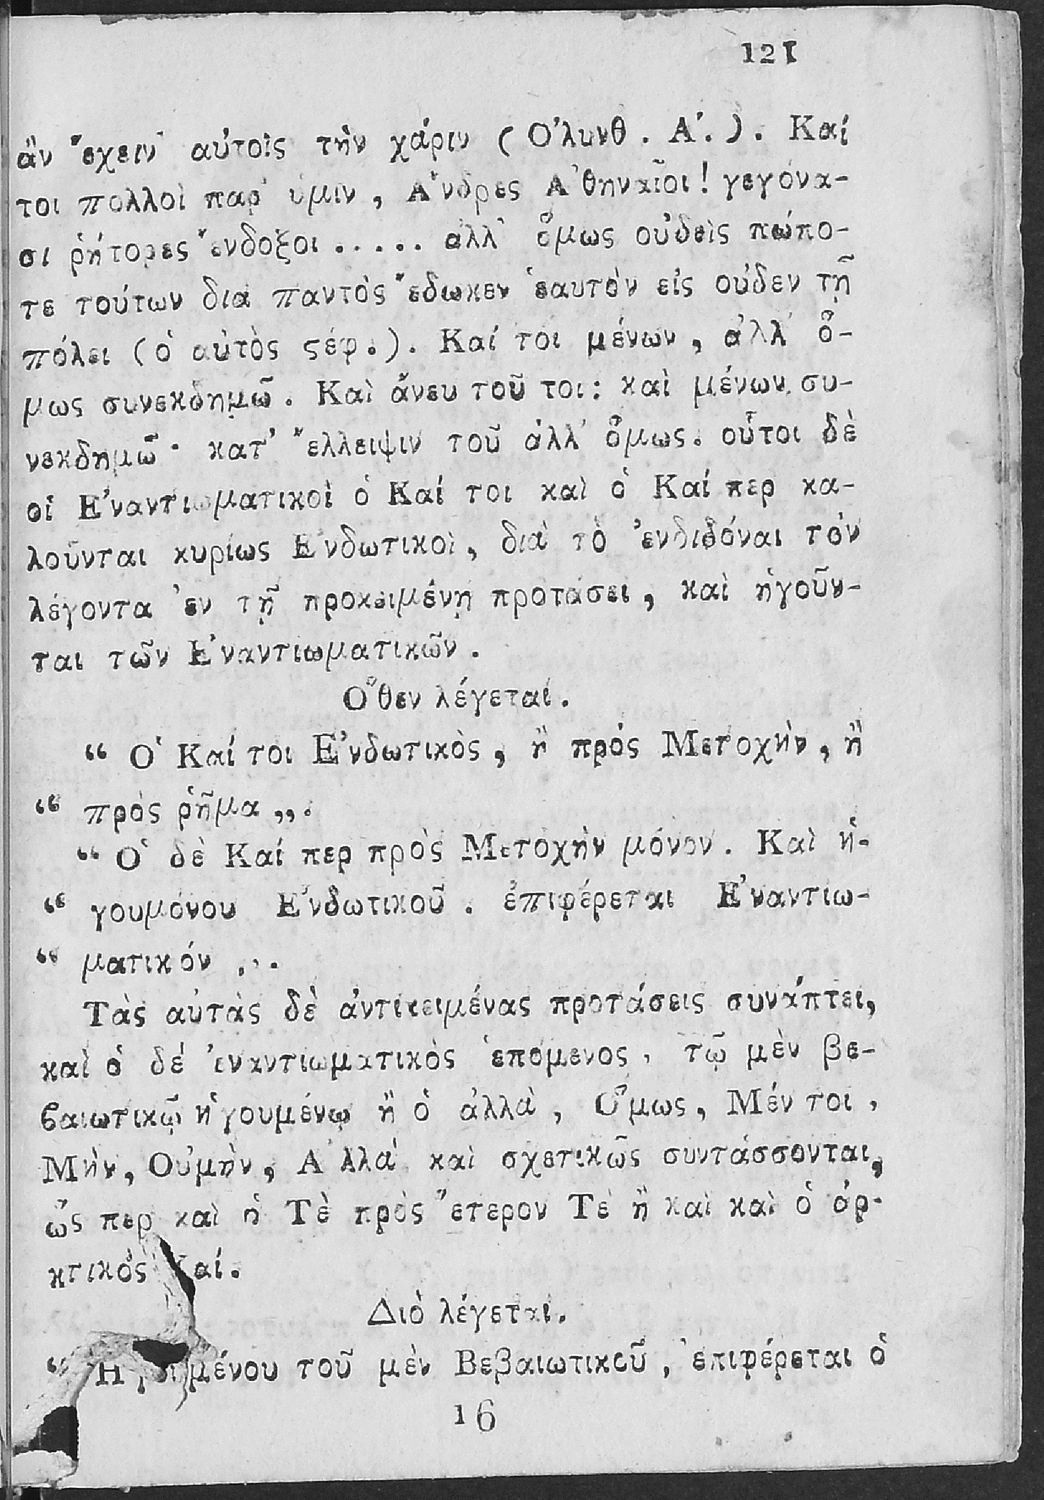 121
ἂν ἔχειν αὐτοῖς τὴν χάριν (Ὀλυνθ. Α΄.). Καί
τοι πολλοὶ παρ' ὑμιν, Ἄνδρες Ἀθηναῖοι! γεγόνα-
σι ῥήτορες ἔνδοξοι ..... ἀλλ' ὅμως οὐδεὶς πώπο-
τε τούτων διὰ παντὸς ἔδωκεν ἑαυτὸν εἰς οὐδεν τῇ
πόλει (ὁ αὐτὸς ςέφ.). Καί τοι μένων, ἀλλ' ὅ-
μως συνεκδημῶ. Καὶ ἄνευ τοῦ τοι: καὶ μένων συ-
νεκδημῶ· κατ' ἔλλειψιν τοῦ ἀλλ' ὅμως. οὗτοι δὲ
οἱ Ἐναντιωματικοὶ ὁ Καί τοι καὶ ὁ Καί περ κα-
λοῦνται κυρίως Ἐνδωτικοὶ, διὰ τὸ ἐνδιδόναι τὸν
λέγοντα ἐν τῇ προκειμένῃ προτάσει, καὶ ἡγοῦν-
ται τῶν Ἐναντιωματικῶν.
Ὅθεν λέγεται.
“ Ὁ Καί τοι Ἐνδωτικὸς, ἢ πρός Μετοχὴν, ἢ
“ πρὸς ῥῆμα „.
“ Ὁ δὲ Καί περ πρὸς Μετοχὴν μόνον. Καὶ ἡ-
“ γουμόνου Ἐνδωτικοῦ. ἐπιφέρεται Ἐναντιω-
“ ματικόν „.
Τὰς αὐτὰς δὲ ἀντικειμένας προτάσεις συνάπτει,
καὶ ὁ δέ ἐναντιωματικὸς ἑπόμενος, τῷ μὲν βε-
ϐαιωτικῷ ἡγουμένῳ ἢ ὁ ἀλλὰ, Ὅμως, Μέν τοι,
Μὴν, Οὐμὴν, Ἀλλὰ καὶ σχετικῶς συντάσσονται,
ὥς περ καὶ ὁ Τὲ πρὸς ἕτερον Τὲ ἢ καὶ καὶ ὁ ἀρ-
κτικὸς Καί.
Διὸ λέγεται.
“ Ἡγουμένου τοῦ μὲν Βεβαιωτικοῦ, ἐπιφέρεται ὁ
16